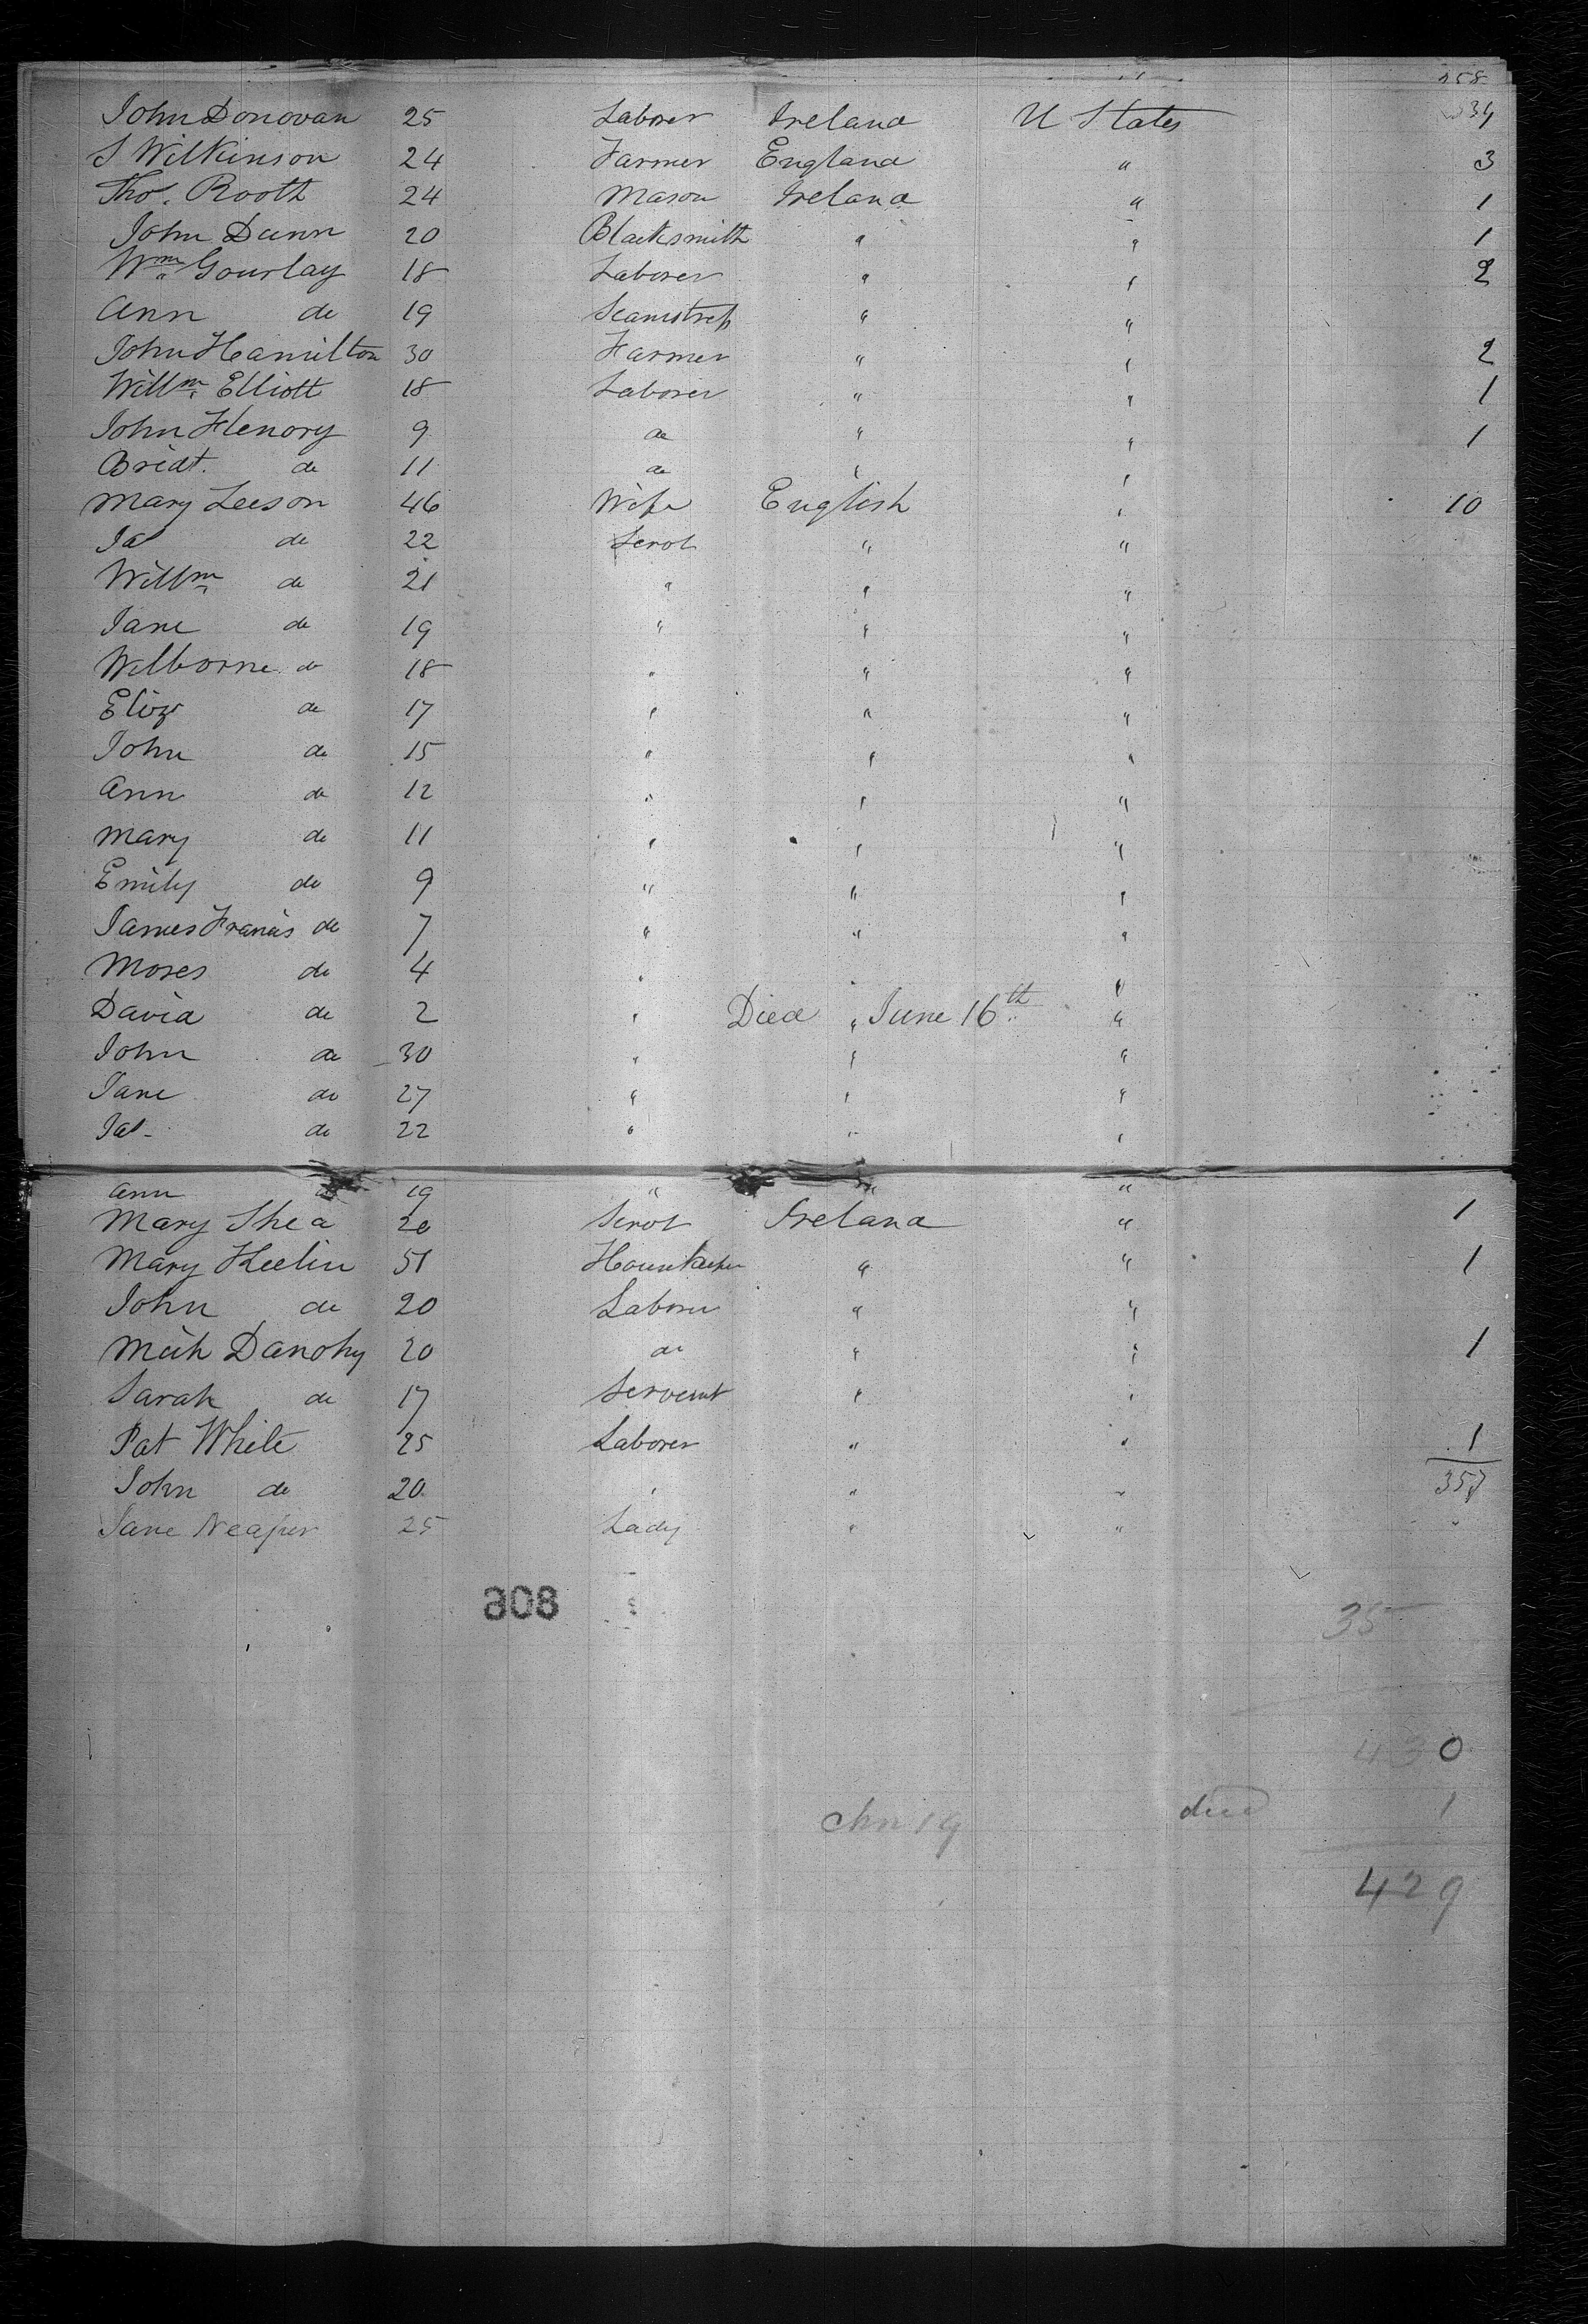 358
John Donovan 25 Laborer Ireland U States 334
S Wilkinson 24 Farmer England " 3
Thos. Rooth 24 Mason Ireland " 1
John Dunn 20 Blacksmith " " 1
Wm Gourlay 18 Laborer " " 2
Ann do 19 Seamstress " "
John Hamilton 30 Farmer " " 2
Willm Elliott 18 Laborer " " 1
John Flenory 9 do " " 1
Bridt. do 11 do " "
Mary Leeson 46 Wife English " 10
Jas do 22 Servt " "
Willm do 21 " " "
Jane do 19 " " "
Welborne do 18 " " "
Eliza do 17 " " "
John do 15 " " "
Ann do 12 " " "
Mary do 11 " " "
Emily do 9 " " "
James Francis do 7 " " "
Moses do 4 " " "
David do 2 " Died " June 16th "
John do 30 " " "
Jane do 27 " " "
Jas. do 22 " " "
Ann do 19 " " "
Mary Shea 20 Servt Ireland " 1
Mary Keelin 51 Housekeeper " " 1
John do 20 Laborer " "
Mich Danohy 20 do " " 1
Sarah do 17 Servent " "
Pat White 25 Laborer " " 1
John do 20 " " " 357
Jane 25 Lady " "
808
35
430
chn 19 died 1
429